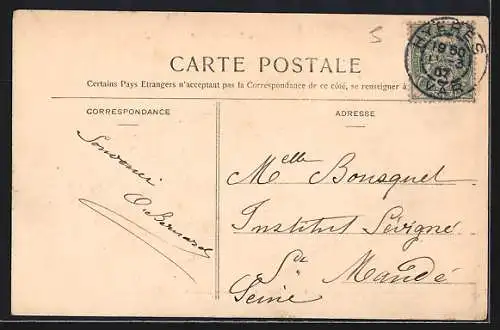 CARTE POSTALE
Certains Pays Etrangers n'acceptant pas la Correspondance de ce côté, se renseigner à
CORRESPONDANCE
ADRESSE
HYÈRES
19 50
3
07
VAR
Souvenir
Melle Bousquet
Institut Sévigné
St Mandé
Seine